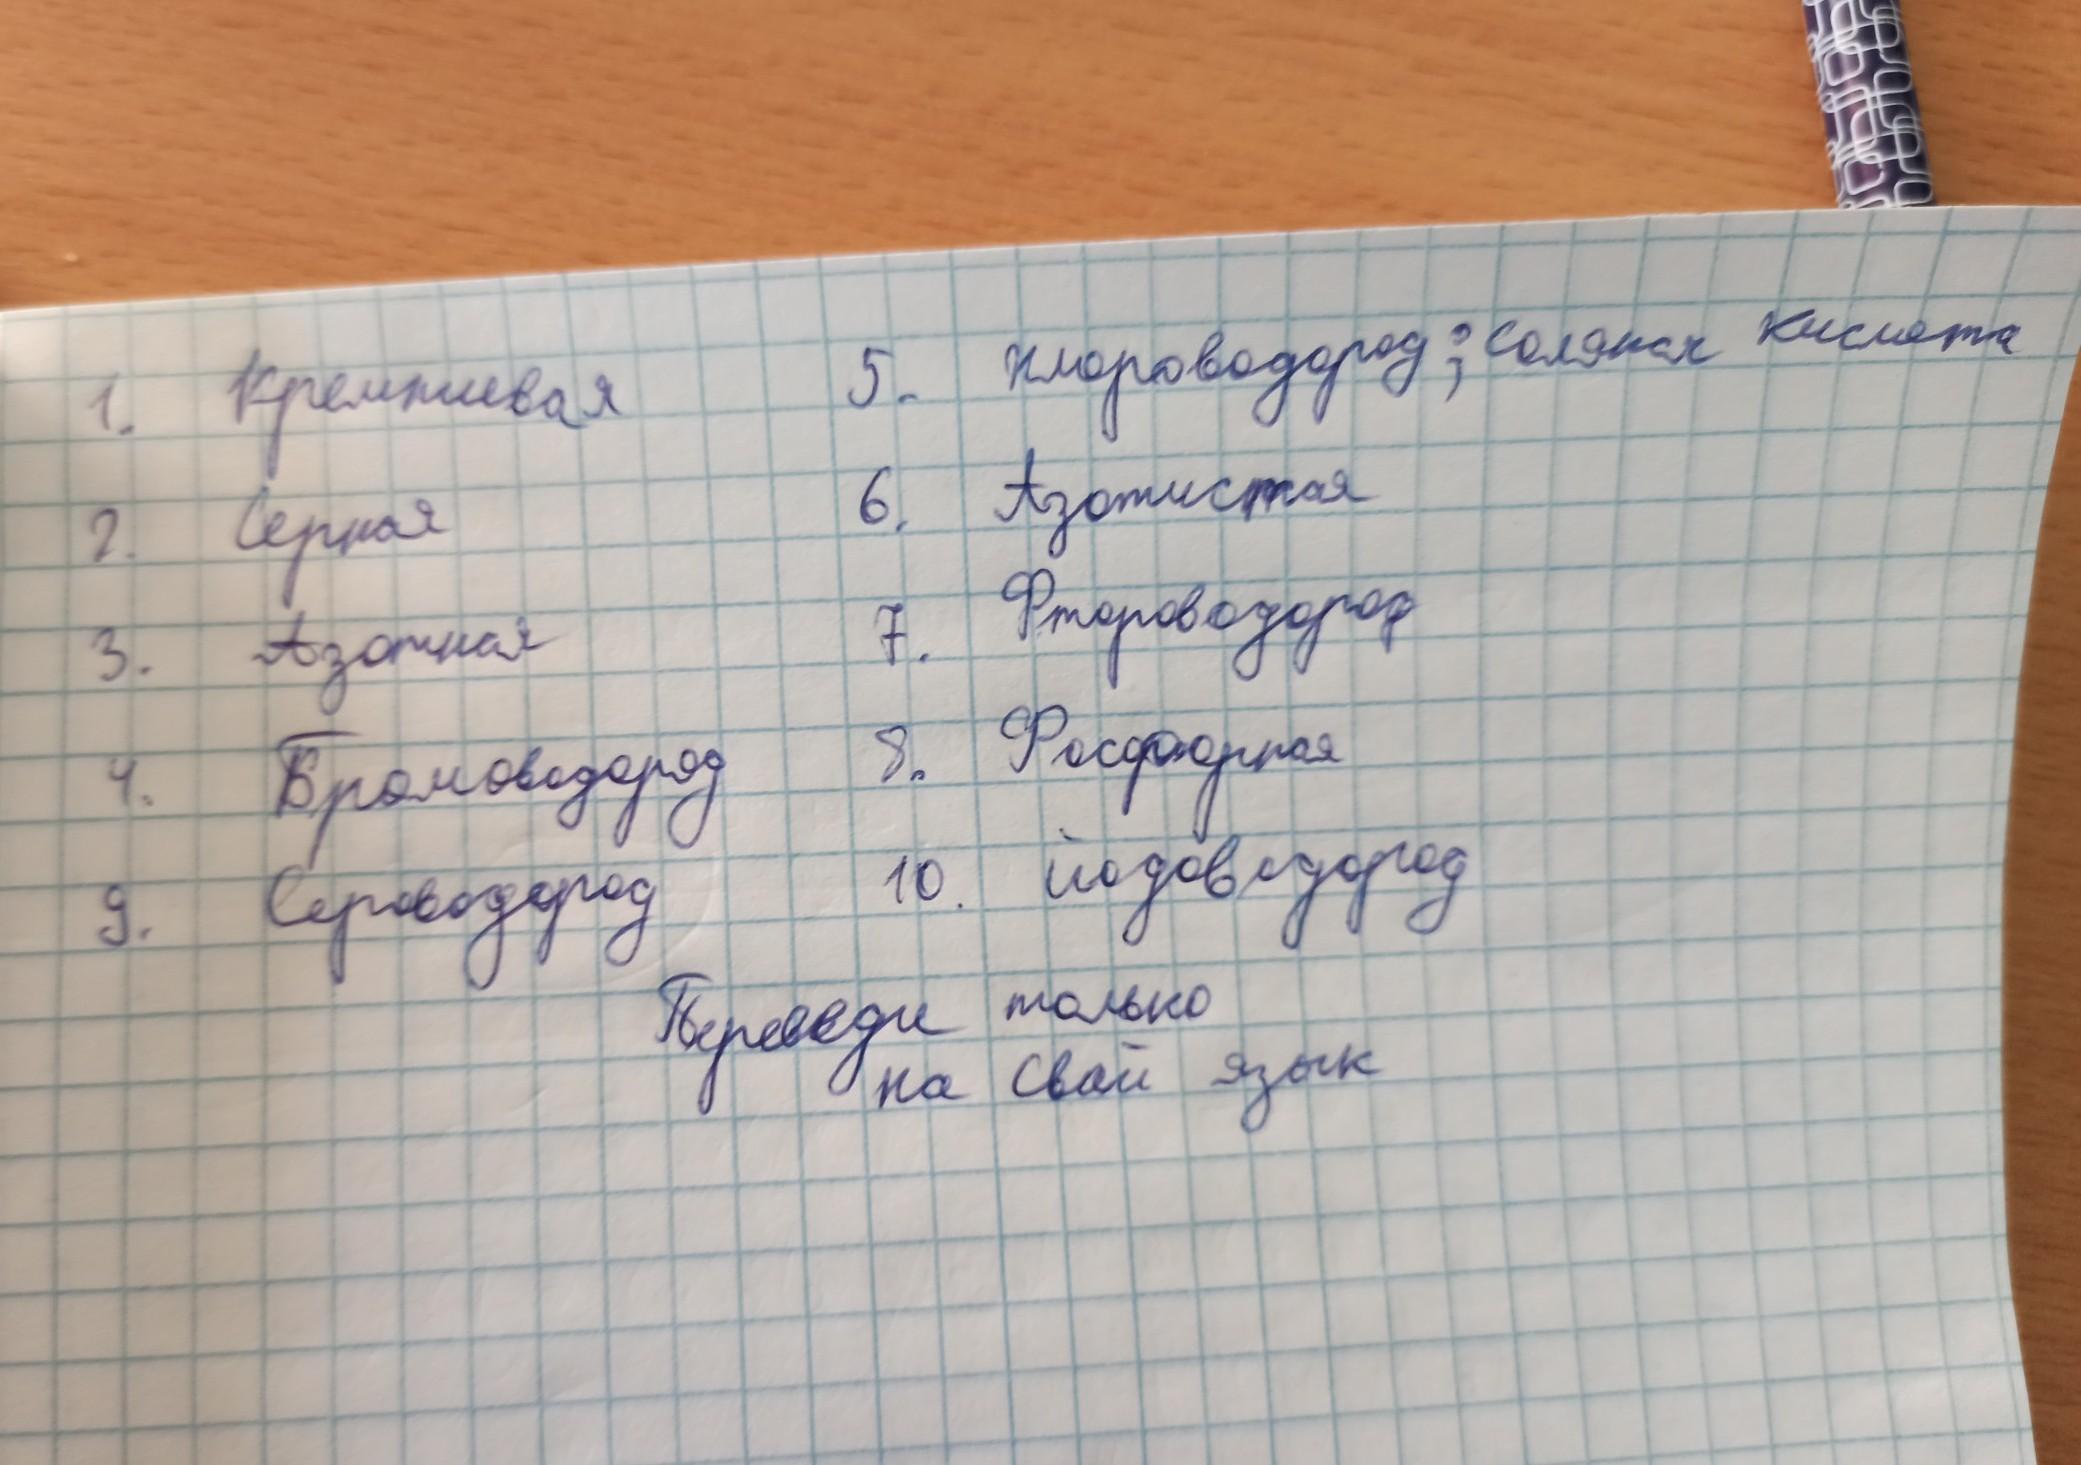 1. Кремниевая
2. Серная
3. Азотная
4. Бромоводород
5. Хлороводород; соляная кислота
6. Азотистая
7. Фтороводород
8. Фосфорная
9. Сероводород
10. Йодоводород
Переведи только
на свой язык